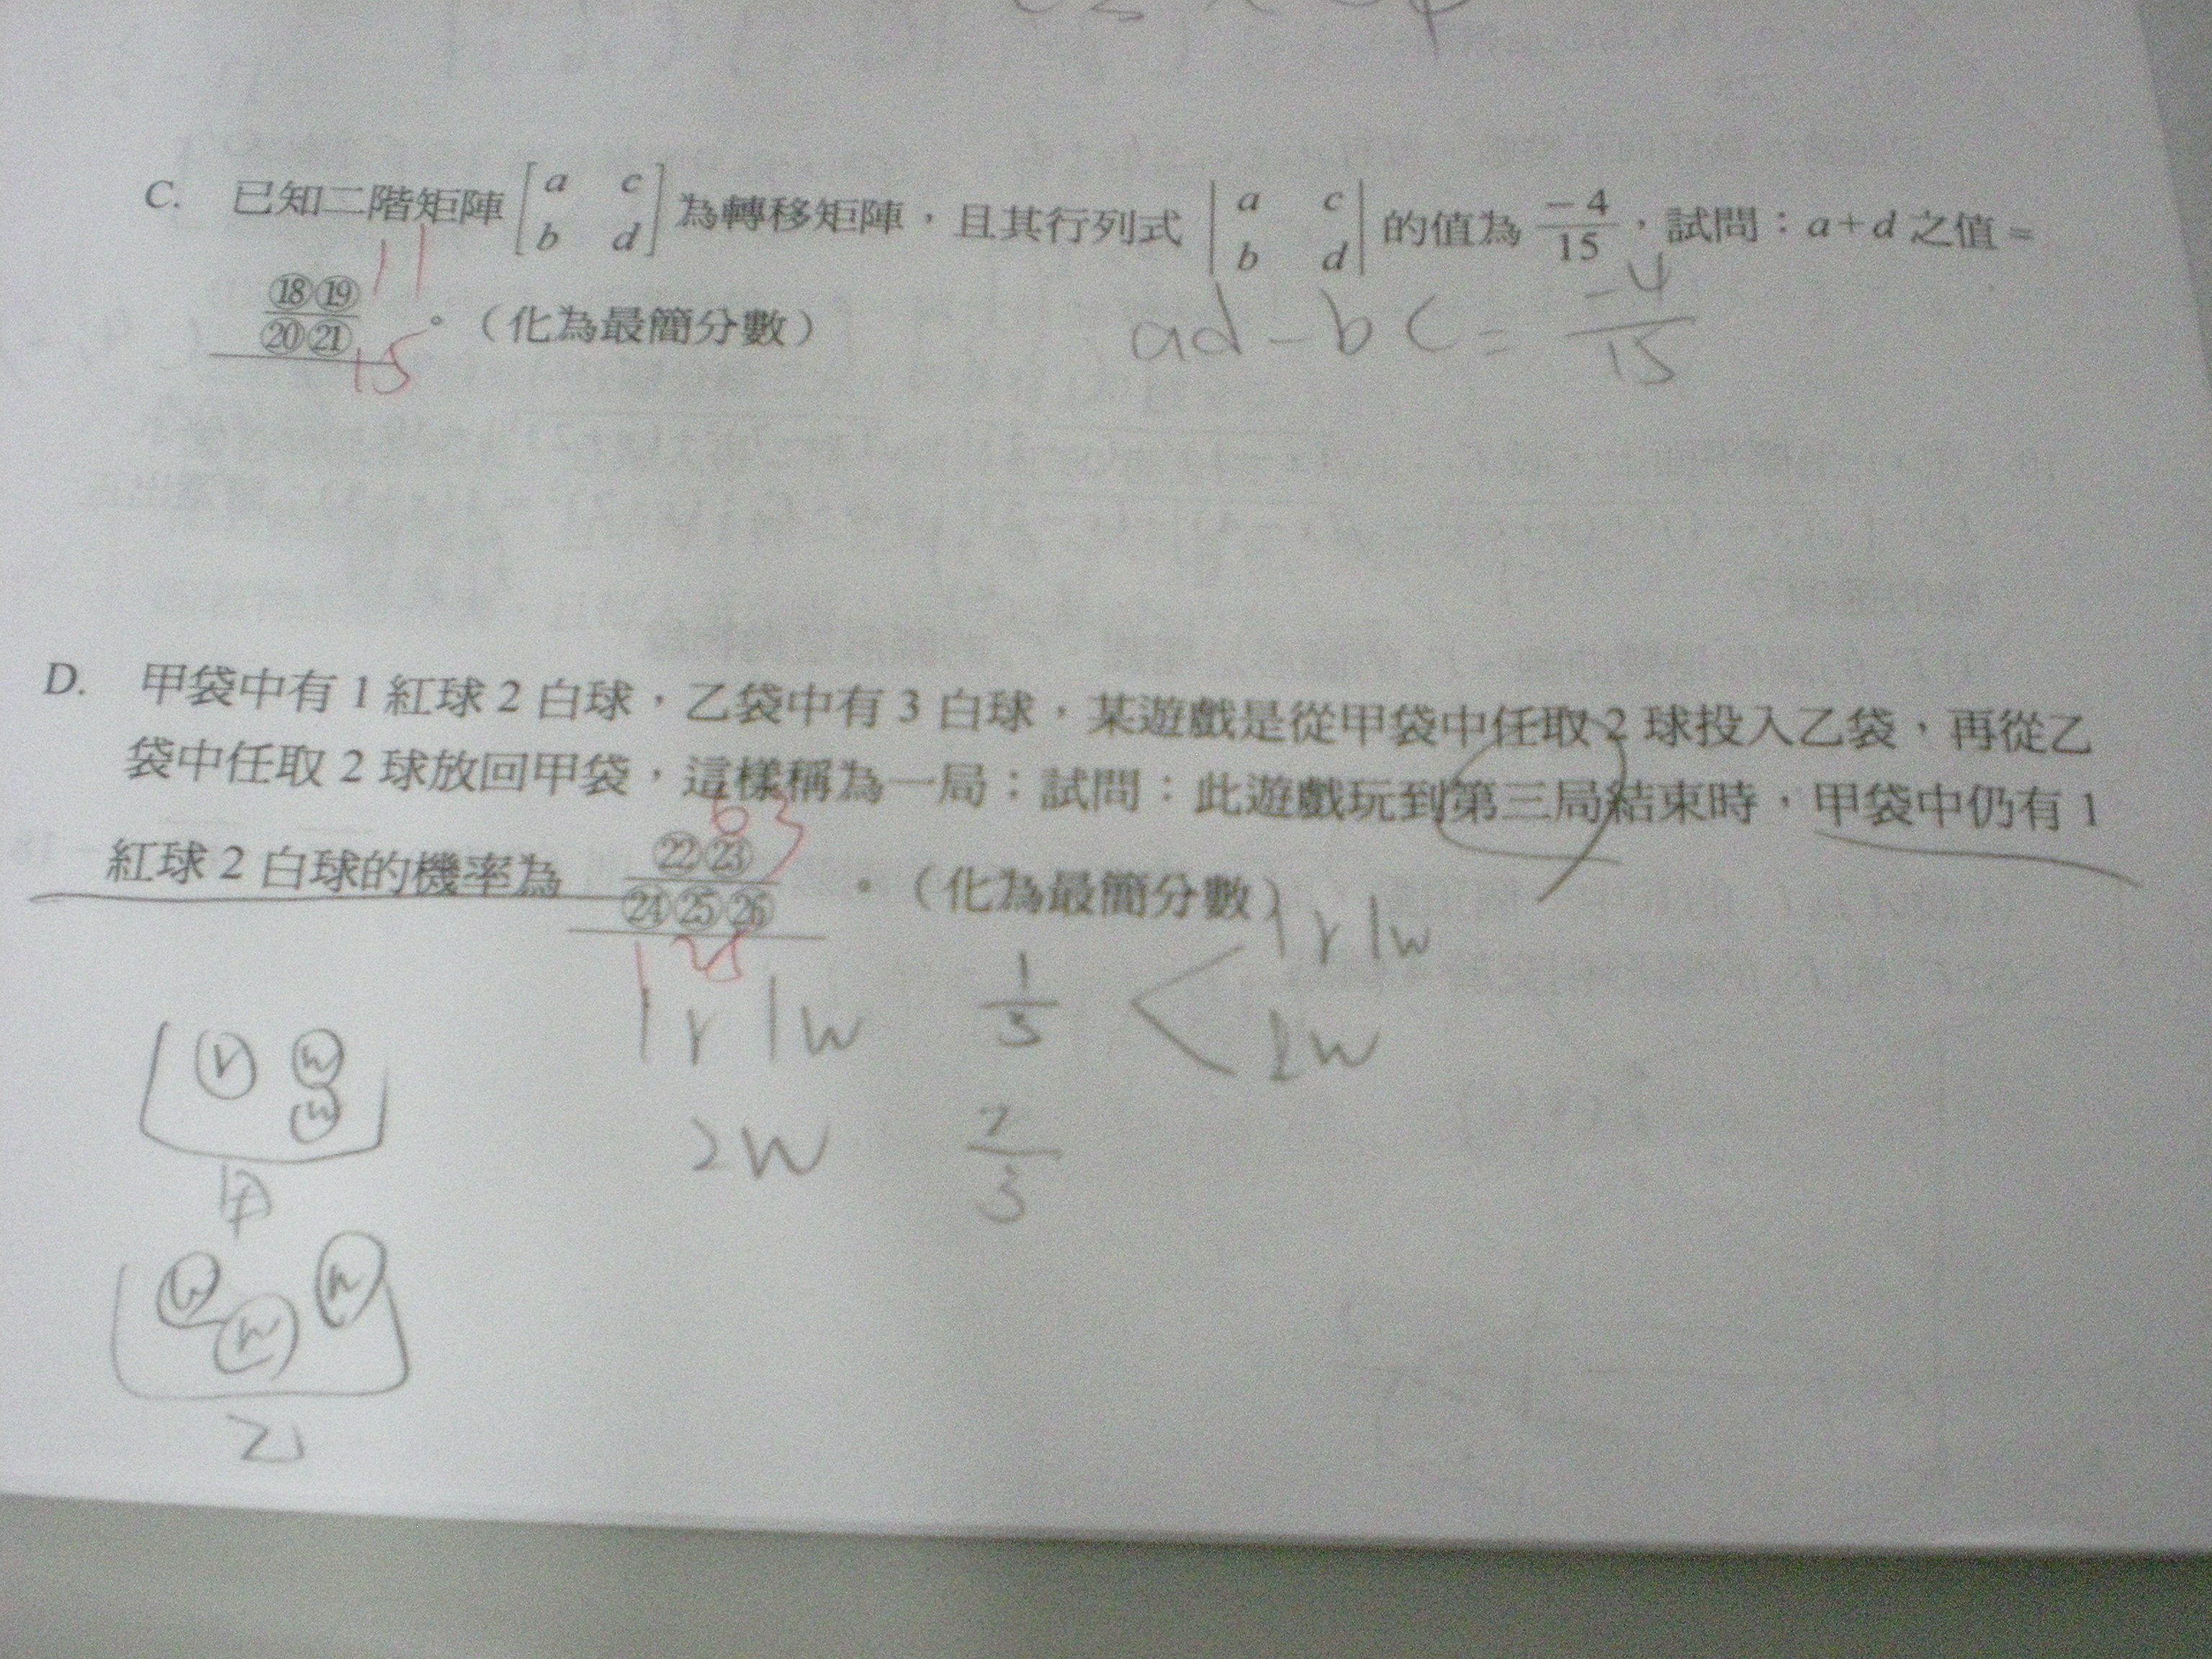 C. 已知二階矩陣 [a c b d] 為轉移矩陣，且其行列式 |a c b d| 的值為 -4/15，試問：a+d 之值=
11
⑱⑲/⑳㉑。（化為最簡分數）
15
ad - bc = -4/15
D. 甲袋中有 1 紅球 2 白球，乙袋中有 3 白球，某遊戲是從甲袋中任取 2 球投入乙袋，再從乙
袋中任取 2 球放回甲袋，這樣稱為一局；試問：此遊戲玩到第三局結束時，甲袋中仍有 1
63
紅球 2 白球的機率為 ㉒㉓/㉔㉕㉖。（化為最簡分數）
125
1r 1w 1/3 < 1r 1w
2w
2w 2/3
r w
w
甲
w w w
乙